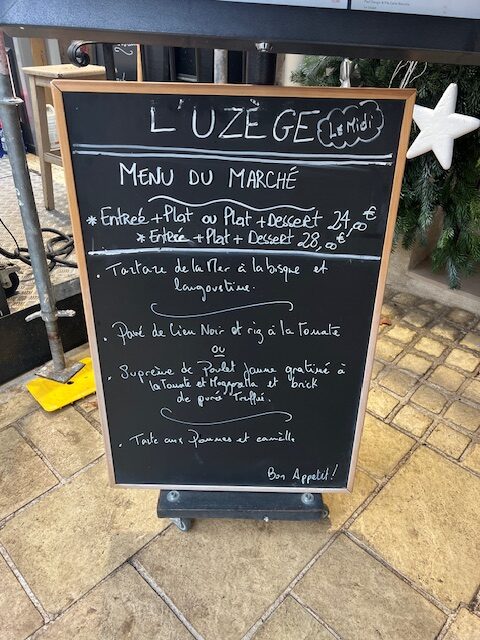 L'UZÈGE Le Midi
MENU DU MARCHÉ
* Entrée + Plat ou Plat + Dessert 24,00€
* Entrée + Plat + Dessert 28,00€
. Tartare de la Mer à la bisque et
langoustine.
. Pavé de Lieu Noir et riz à la tomate
ou
. Suprême de Poulet Jaune gratiné à
la tomate et Mozzarella et brick
de purée Truffée.
. Tarte aux Pommes et
Bon Appétit!